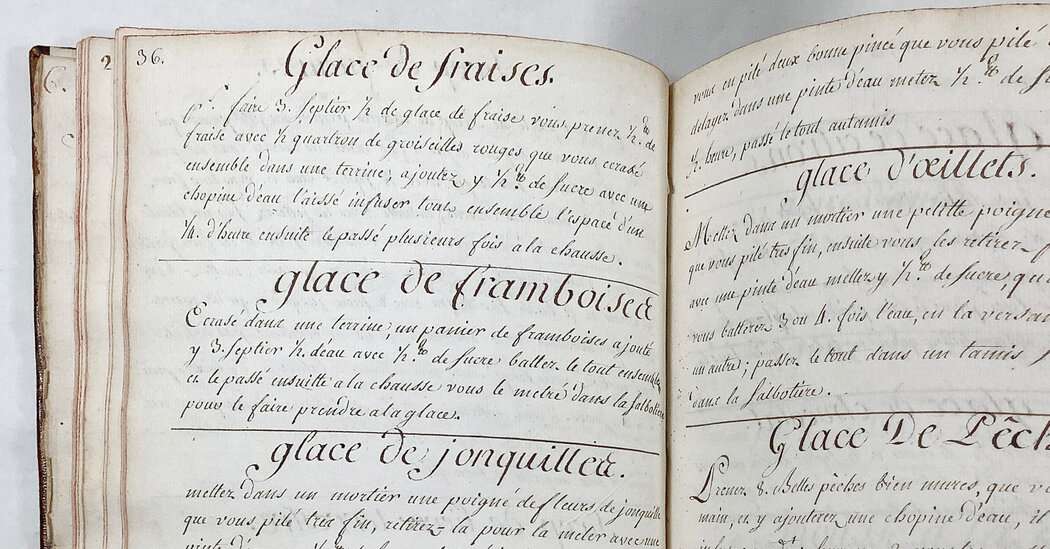 36.
2
6.
Glace de fraises.
pr. faire 3. Septier 1/2 de glace de fraise vous prenez 1/2 de
fraise avec 1/2 quartron de groiseilles rouges que vous ecrasé
ensemble dans une terrine, ajoutez y 1/2 de sucre avec une
chopine d'eau l'aissé infuser tout ensemble l'espace d'un
1/4. d'heure ensuite le passé plusieurs fois à la chausse.
glace de framboises
Ecrasé dans une terrine, un panier de framboises ajouté
y 3. Septier 1/2. d'eau avec 1/2 de sucre battez le tout ensemble
et le passé ensuitte a la chausse vous le metré dans la Salbotiere
pour le faire prendre a la glace.
glace de jonquilles.
mettez dans un mortier une poigné de fleurs de jonquille
que vous pilé tres fin, retirez-la pour la meler avec une
pinte d'eau
vous en pilé deux bonne pincé que vous pilé
delayez dans une pinte d'eau metez 1/2 de
heure, passé le tout au tamis
glace d'œillets.
Mettez dans un mortier une petitte poigné
que vous pilé tres fin, ensuite vous les retirez
avec une pinte d'eau mettez y 1/2 de sucre, que
vous batterez 3 ou 4. fois l'eau, en la versant
un autre; passez le tout dans un tamis
dans la Salbotiere.
Glace De Pêch
Prenez 8. Belles pêches bien mures, que
main, et y ajouterez une chopine d'eau, il